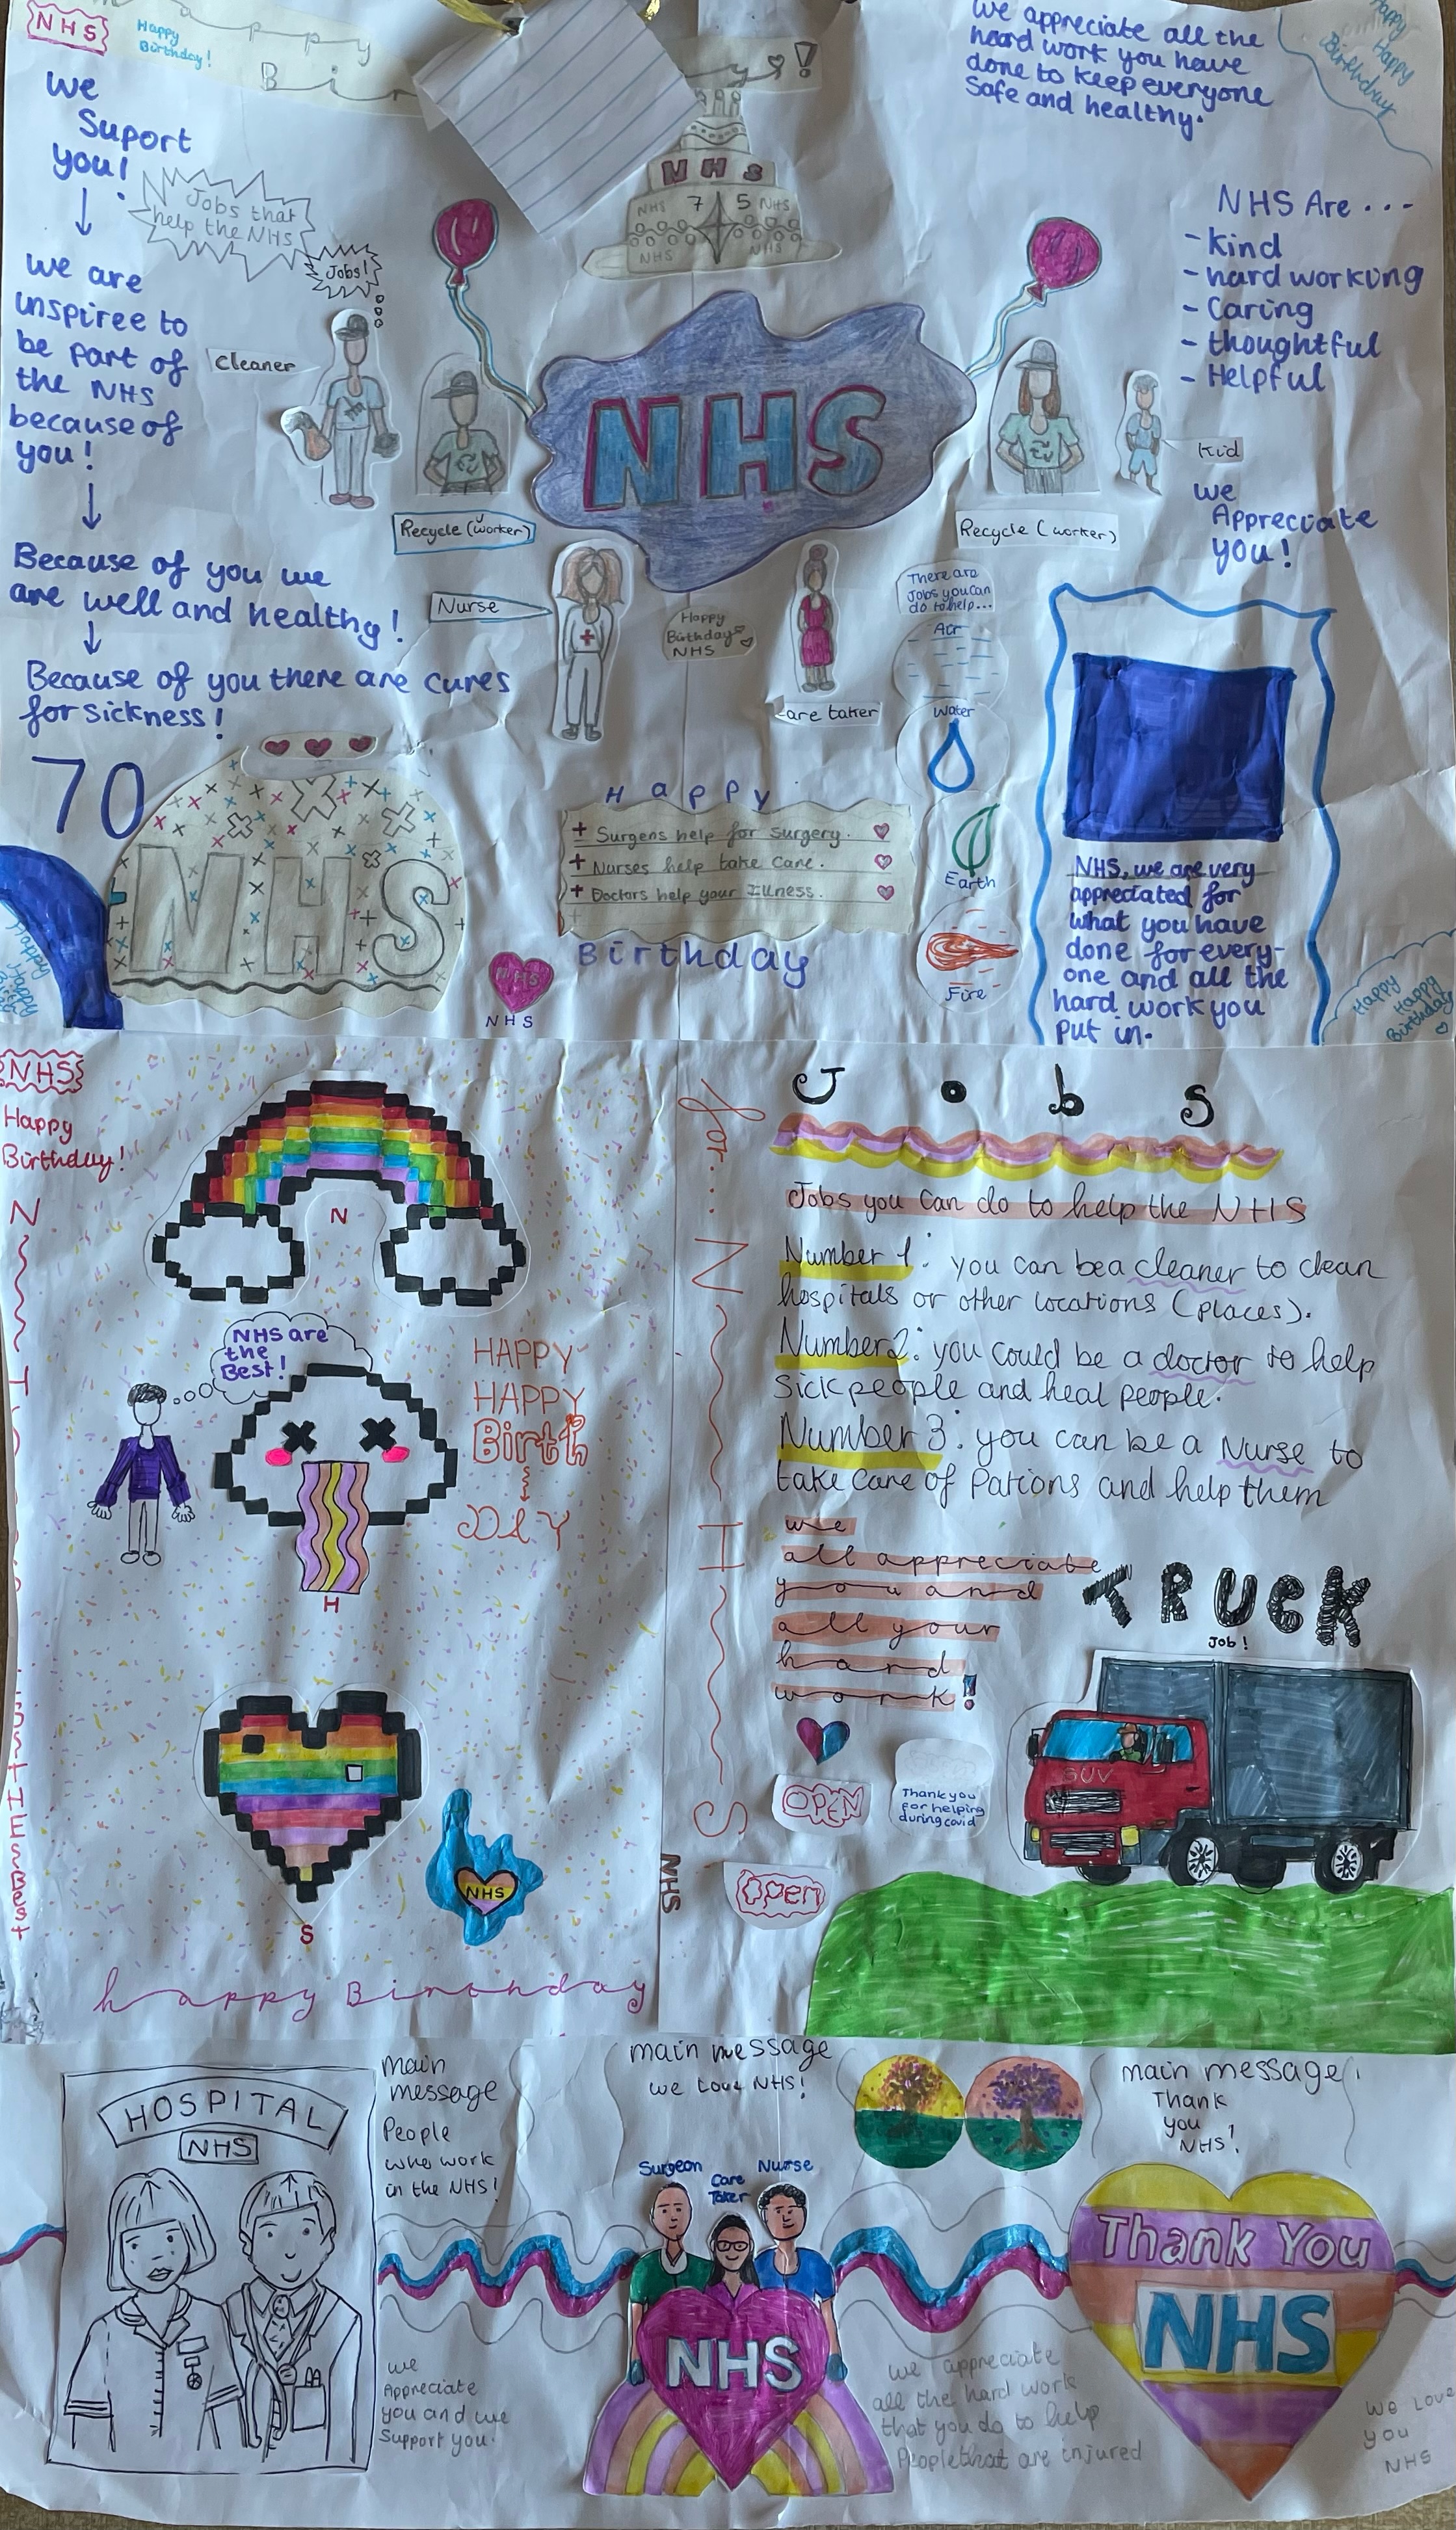 NHS
Happy
Birthday!
Happy
Bir
y!
We
Suport
you!
Jobs that
help the NHS
Jobs!
we are
inspiree to
be part of
the NHS
because of
you!
Because of you we
are well and healthy!
Because of you there are cures
for sickness!
70
NHS
NHS
Happy
Happy
Birthday
cleaner
Recycle (worker)
Nurse
NHS
NHS 7 5 NHS
NHS NHS
NHS
Happy
Birthday
NHS
are taker
Recycle (worker)
Kid
We appreciate all the
hard work you have
done to keep everyone
Safe and healthy.
Happy
Happy
Birthday
NHS Are ...
- kind
- hard working
- Caring
- thoughtful
- Helpful
we
Appreciate
you!
There are
Jobs you can
do to help...
Air
Water
Earth
Fire
Happy
+ Surgens help for surgery.
+ Nurses help take care.
+ Doctors help your Illness.
Birthday
NHS
NHS
NHS, we are very
appreciated for
what you have
done for every-
one and all the
hard work you
put in.
Happy
Happy
Birthday
NHS
Happy
Birthday!
N
NHS are
the
Best!
HAPPY
HAPPY
Birth
DAY
H
S
NHS
happy Birthday
for... N H S
NHS
Jobs
Jobs you can do to help the NHS
Number 1: you can be a cleaner to clean
hospitals or other locations (places).
Number 2: you could be a doctor to help
sick people and heal people.
Number 3: you can be a Nurse to
take care of Pations and help them
we
all appreciate
you and
all your
hard
work!
TRUCK
Job!
SUV
OPEN
Thank you
for helping
during covid
Open
HOSPITAL
NHS
main
message
People
who work
in the NHS!
we
Appreciate
you and we
Support you.
main message
we Love NHS!
Surgeon
Care
Taker
Nurse
NHS
we appreciate
all the hard work
that you do to help
People that are injured
main message!
Thank
you
NHS!
Thank You
NHS
we Love
you
NHS